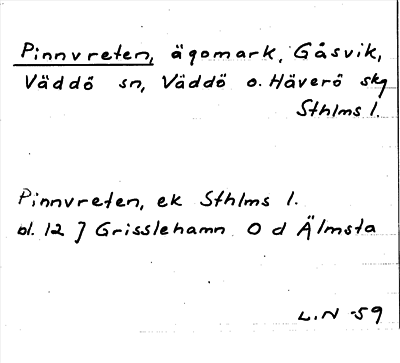 Pinnvreten, ägomark, Gåsvik,
Väddö sn, Väddö o. Häverö skg
Sthlms l.
Pinnvreten, ek Sthlms l.
bl. 12 J Grisslehamn O d Älmsta
L.N -59